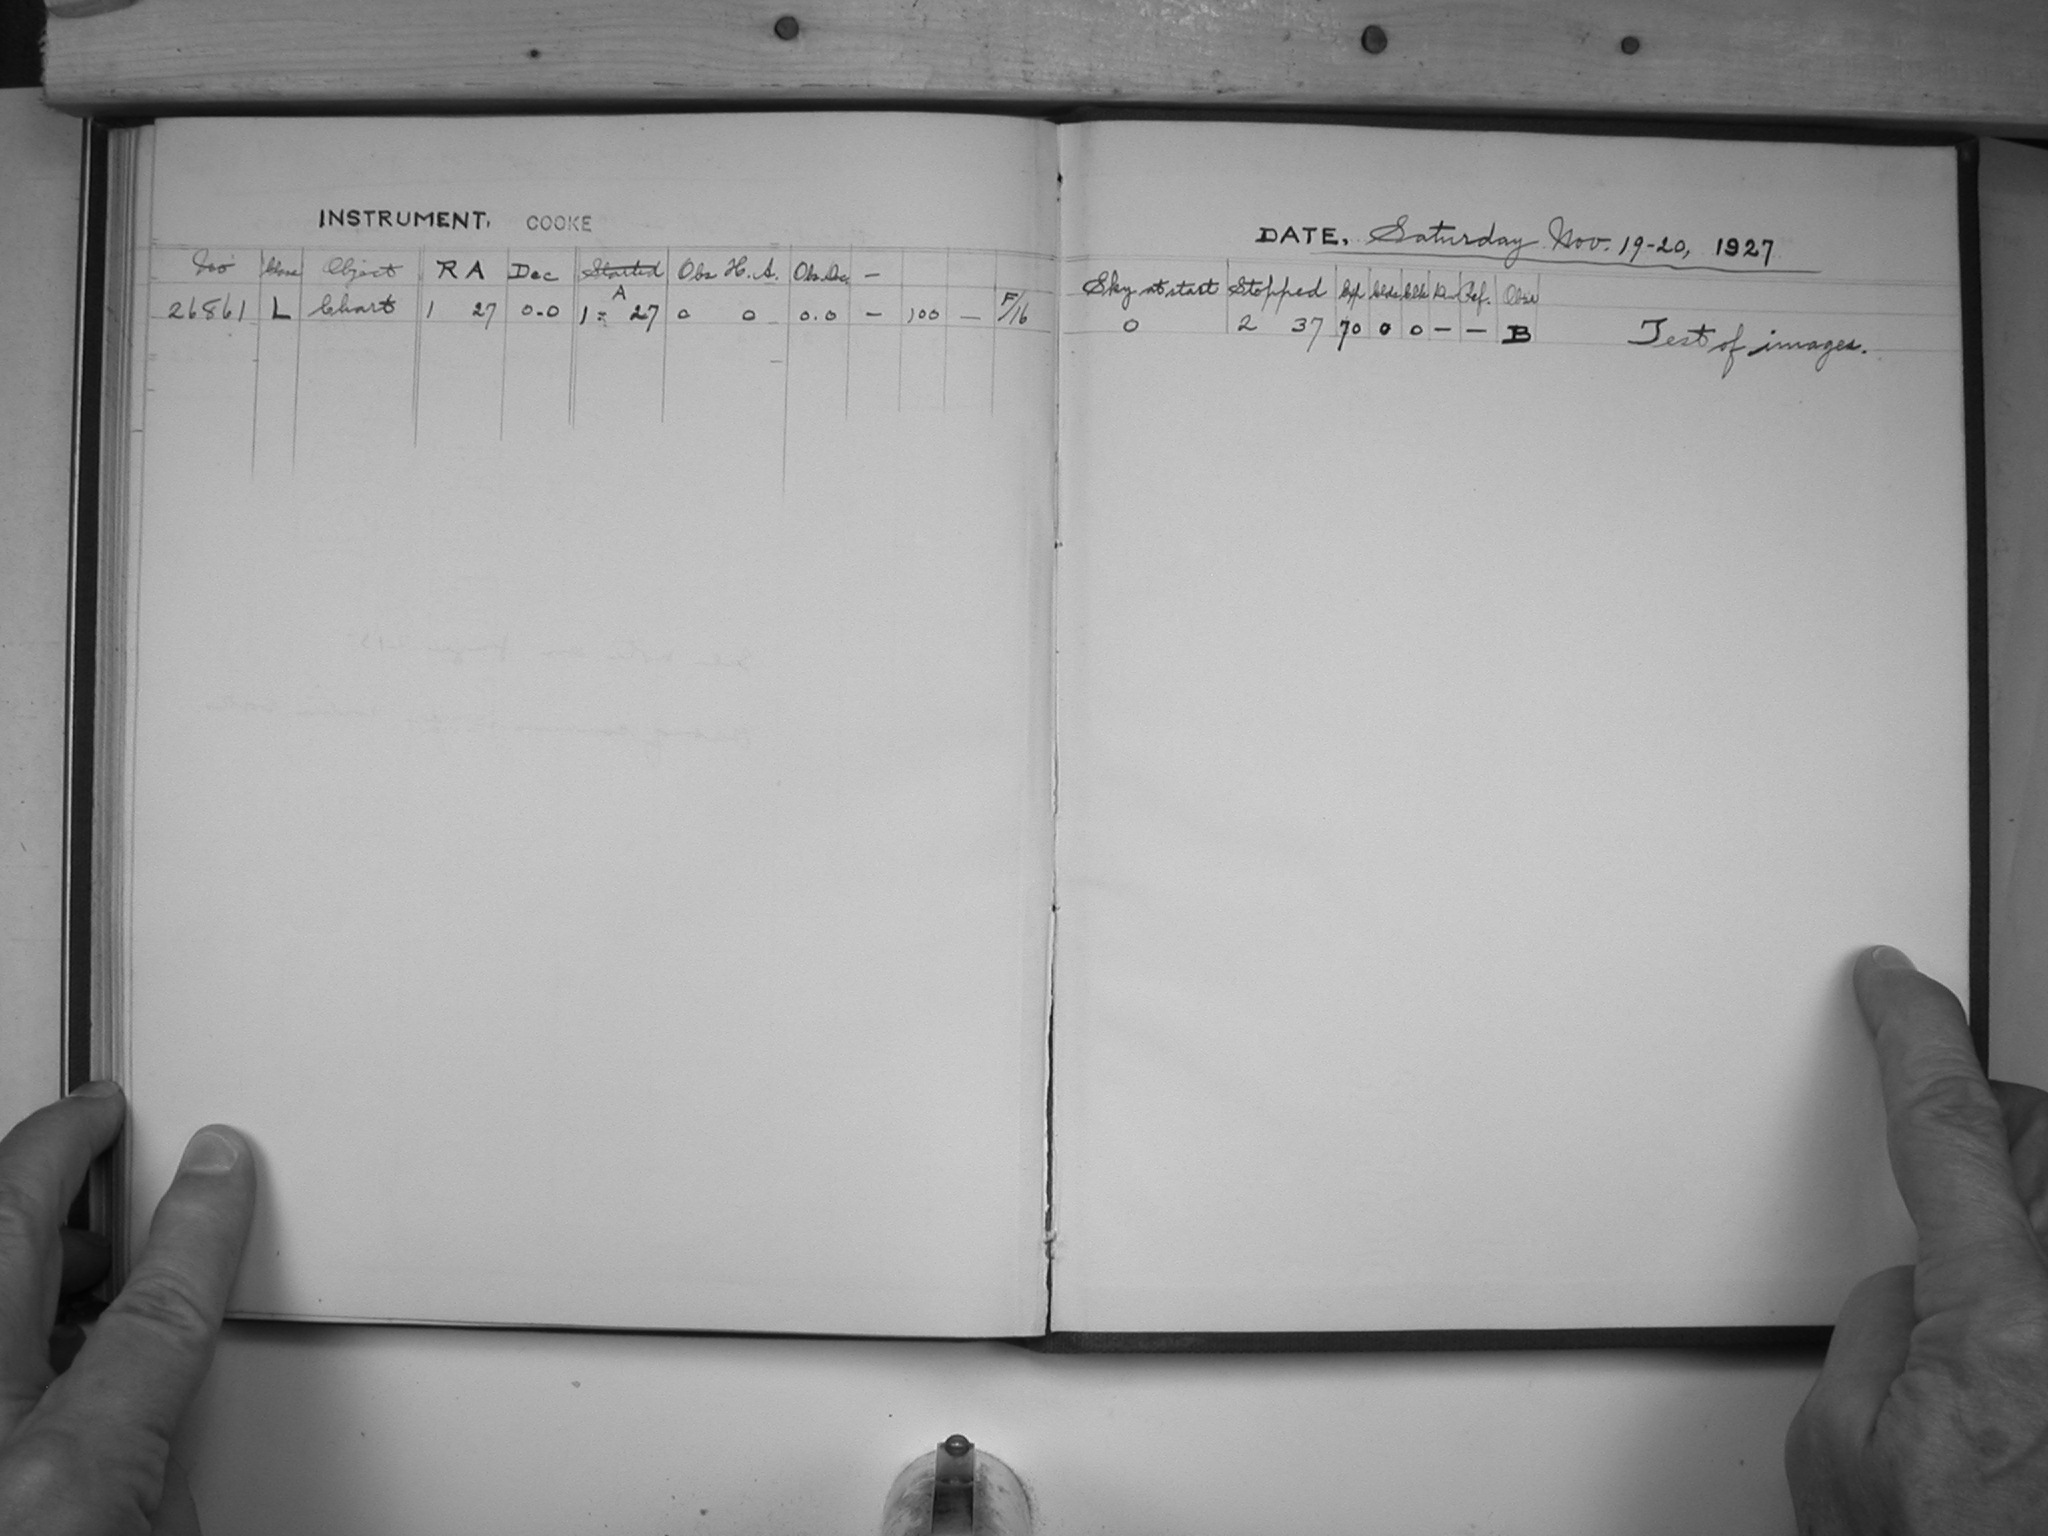 INSTRUMENT. COOKE
No Class Object R A Dec Started Obs H. A. Obs. Dec. -
26861 L Chart 1 27 0.0 A 1 = 27 0 0 0.0 - 100 - F/16
DATE, Saturday Nov. 19-20, 1927
Sky at start Stopped Exp Clds Clk Ref. Obsr
0 2 37 70 0 0 - - B Test of images.